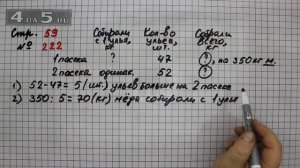 4DA5.RU
Стр. 59
№ 222
Собирали с 1 улья, кг
Кол-во ульев, шт.
Собрали всего, кг
1 пасека ? 47 ?, на 350 кг м.
2 пасека одинак. 52 ?
1) 52-47=5 (шт.) ульев больше на 2 пасеке
2) 350:5=70 (кг) мёда собирали с 1 улья